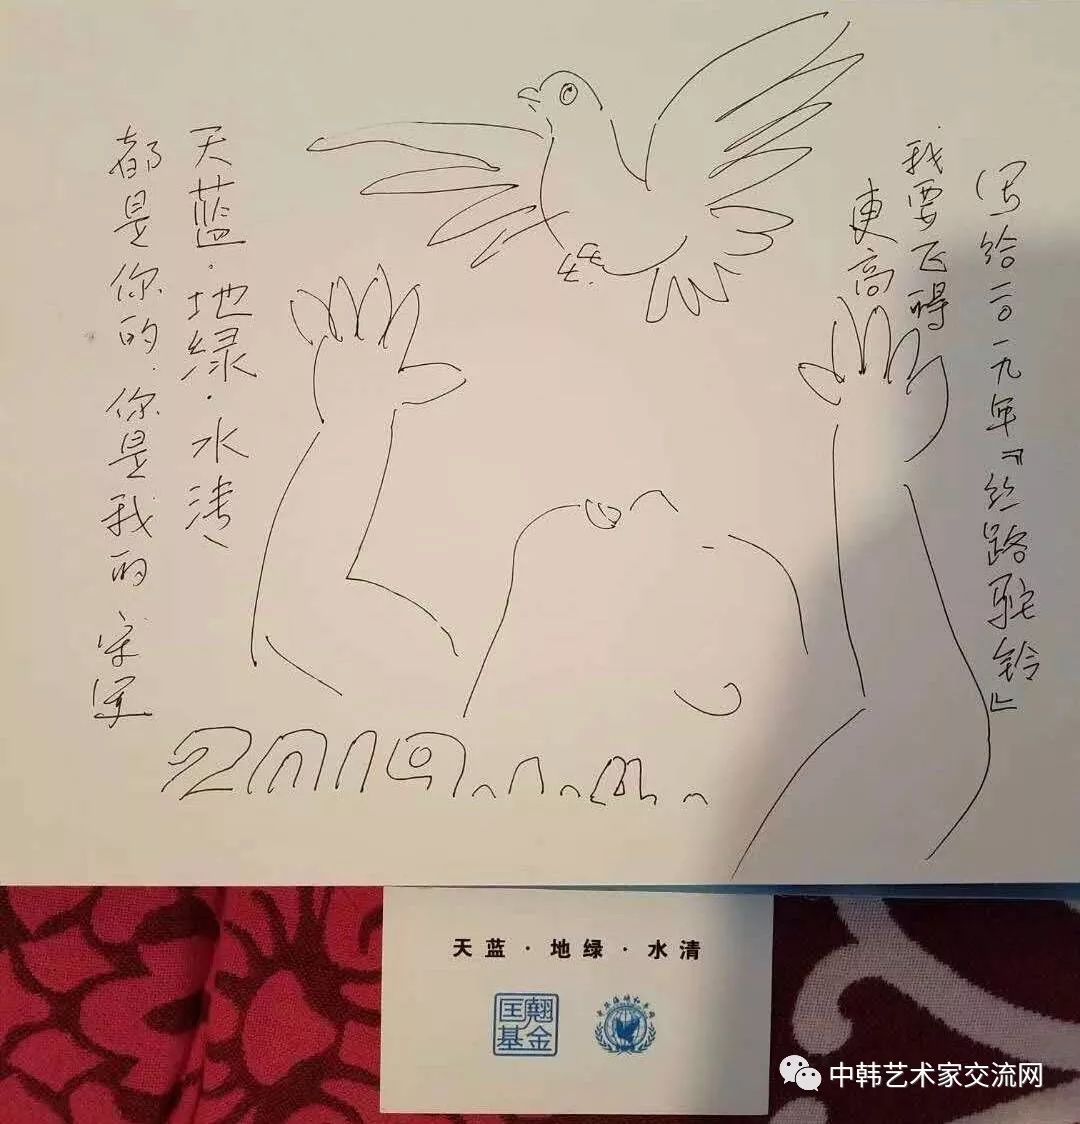 写给二〇一九年『丝路驼铃』
我要飞得
更高
天蓝·地绿·水清、
都是你的.你是我的
2019
天蓝·地绿·水清
匡翹
基金
中韩艺术家交流网